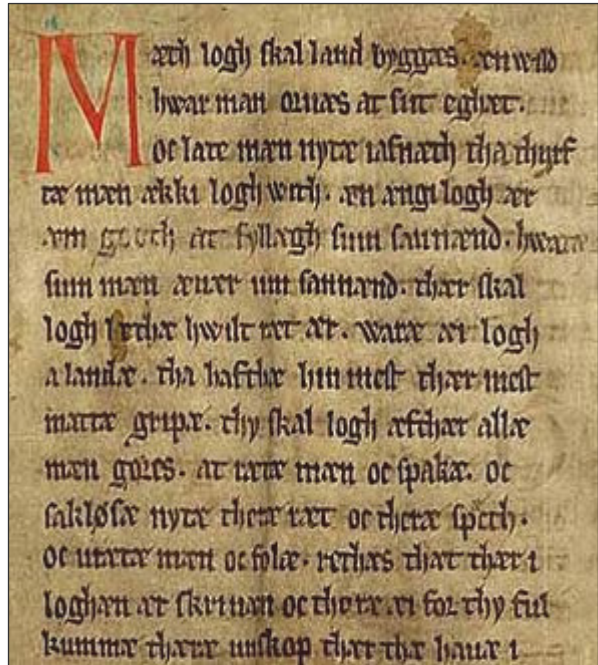 Mæth logh skal land byggæs. æn wild
hwar man orwæs at sint eghæt.
oc late mæn nytæ iafnæth tha thyrf
tæ mæn ækki logh with. æn ængi logh ær
æm gooth at fyllægh sum sannænd. hwaræ
sum mæn æuær um sannænd. thær skal
logh lethæ hwilt ræt ær. waræ æi logh
a landæ. tha hafthæ hin mest thær mest
mattæ gripæ. thy skal logh æfthær allæ
mæn gøres. at rætæ mæn oc spakæ. oc
sakløsæ nytæ theræ ræt oc theræ spech.
oc urætæ mæn oc folæ. rethæs that thær i
loghæn ær skriuæn oc thoræ æi for thy ful
kummæ theræ unskop thær the hauæ i